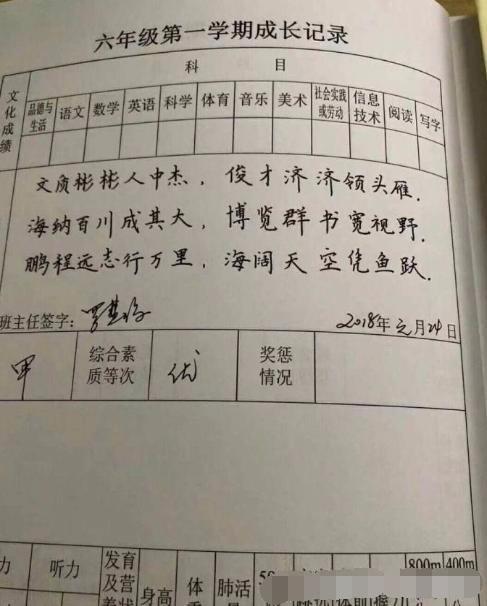 六年级第一学期成长记录
科 目
文化成绩
品德与生活 语文 数学 英语 科学 体育 音乐 美术 社会实践或劳动 信息技术 阅读 写字
文质彬彬人中杰，俊才济济领头雁.
海纳百川成其大，博览群书宽视野.
鹏程远志行万里，海阔天空凭鱼跃.
班主任签字：
2018年元月24日
甲 综合素质等次 优 奖惩情况
力 听力 发育及营 身高 体 肺活 50 800m 400m